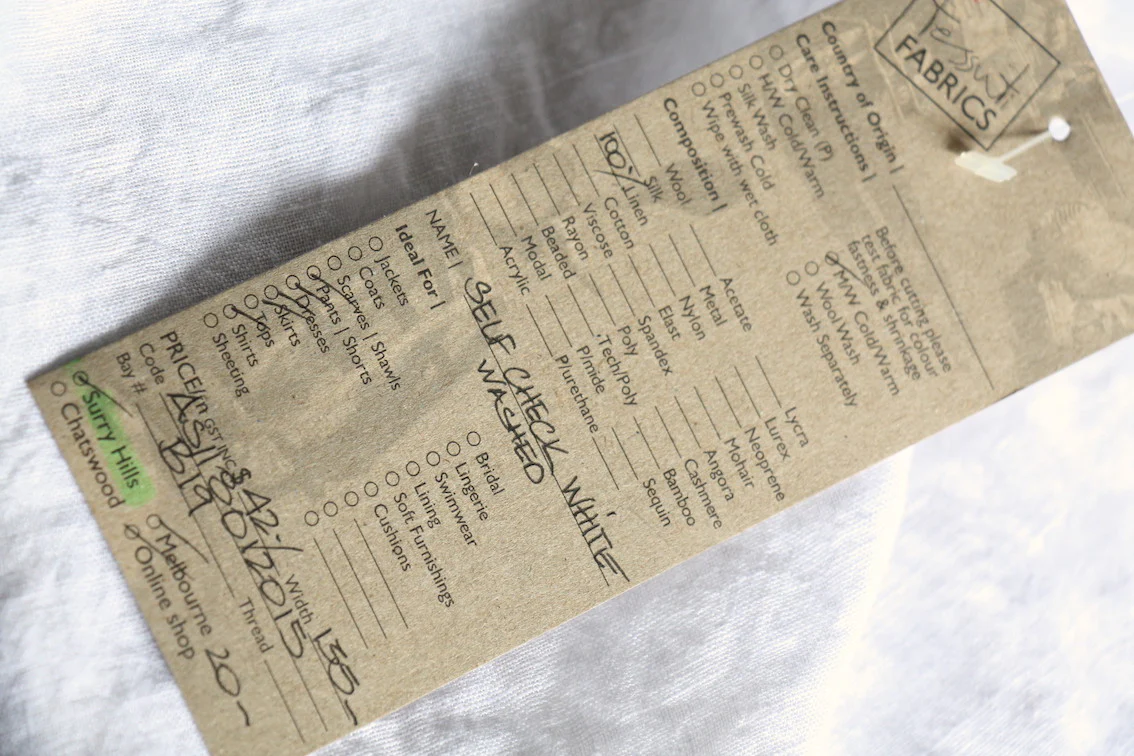 Tessuti
FABRICS
Country of Origin |
Care Instructions |
Dry Clean (P)
H/W Cold/Warm
Silk Wash
Prewash Cold
Wipe with wet cloth
Before cutting please
test fabric for colour
fastness & shrinkage
M/W Cold/Warm
Wool Wash
Wash Separately
Composition |
Wool
Silk
100% Linen
Cotton
Viscose
Rayon
Beaded
Modal
Acrylic
Acetate
Metal
Nylon
Elast
Spandex
Poly
Tech/Poly
P/mide
P/urethane
Lycra
Lurex
Neoprene
Mohair
Angora
Cashmere
Bamboo
Sequin
NAME | SELF CHECK WHITE
WASHED
Ideal For |
Jackets
Coats
Scarves | Shawls
Pants | Shorts
Dresses
Skirts
Tops
Shirts
Sheeting
Bridal
Lingerie
Swimwear
Lining
Soft Furnishings
Cushions
PRICE/m GST INC $42-/ Width 135-
Code
Bay # B19 Thread
Surry Hills
Chatswood
Melbourne 20-
Online shop